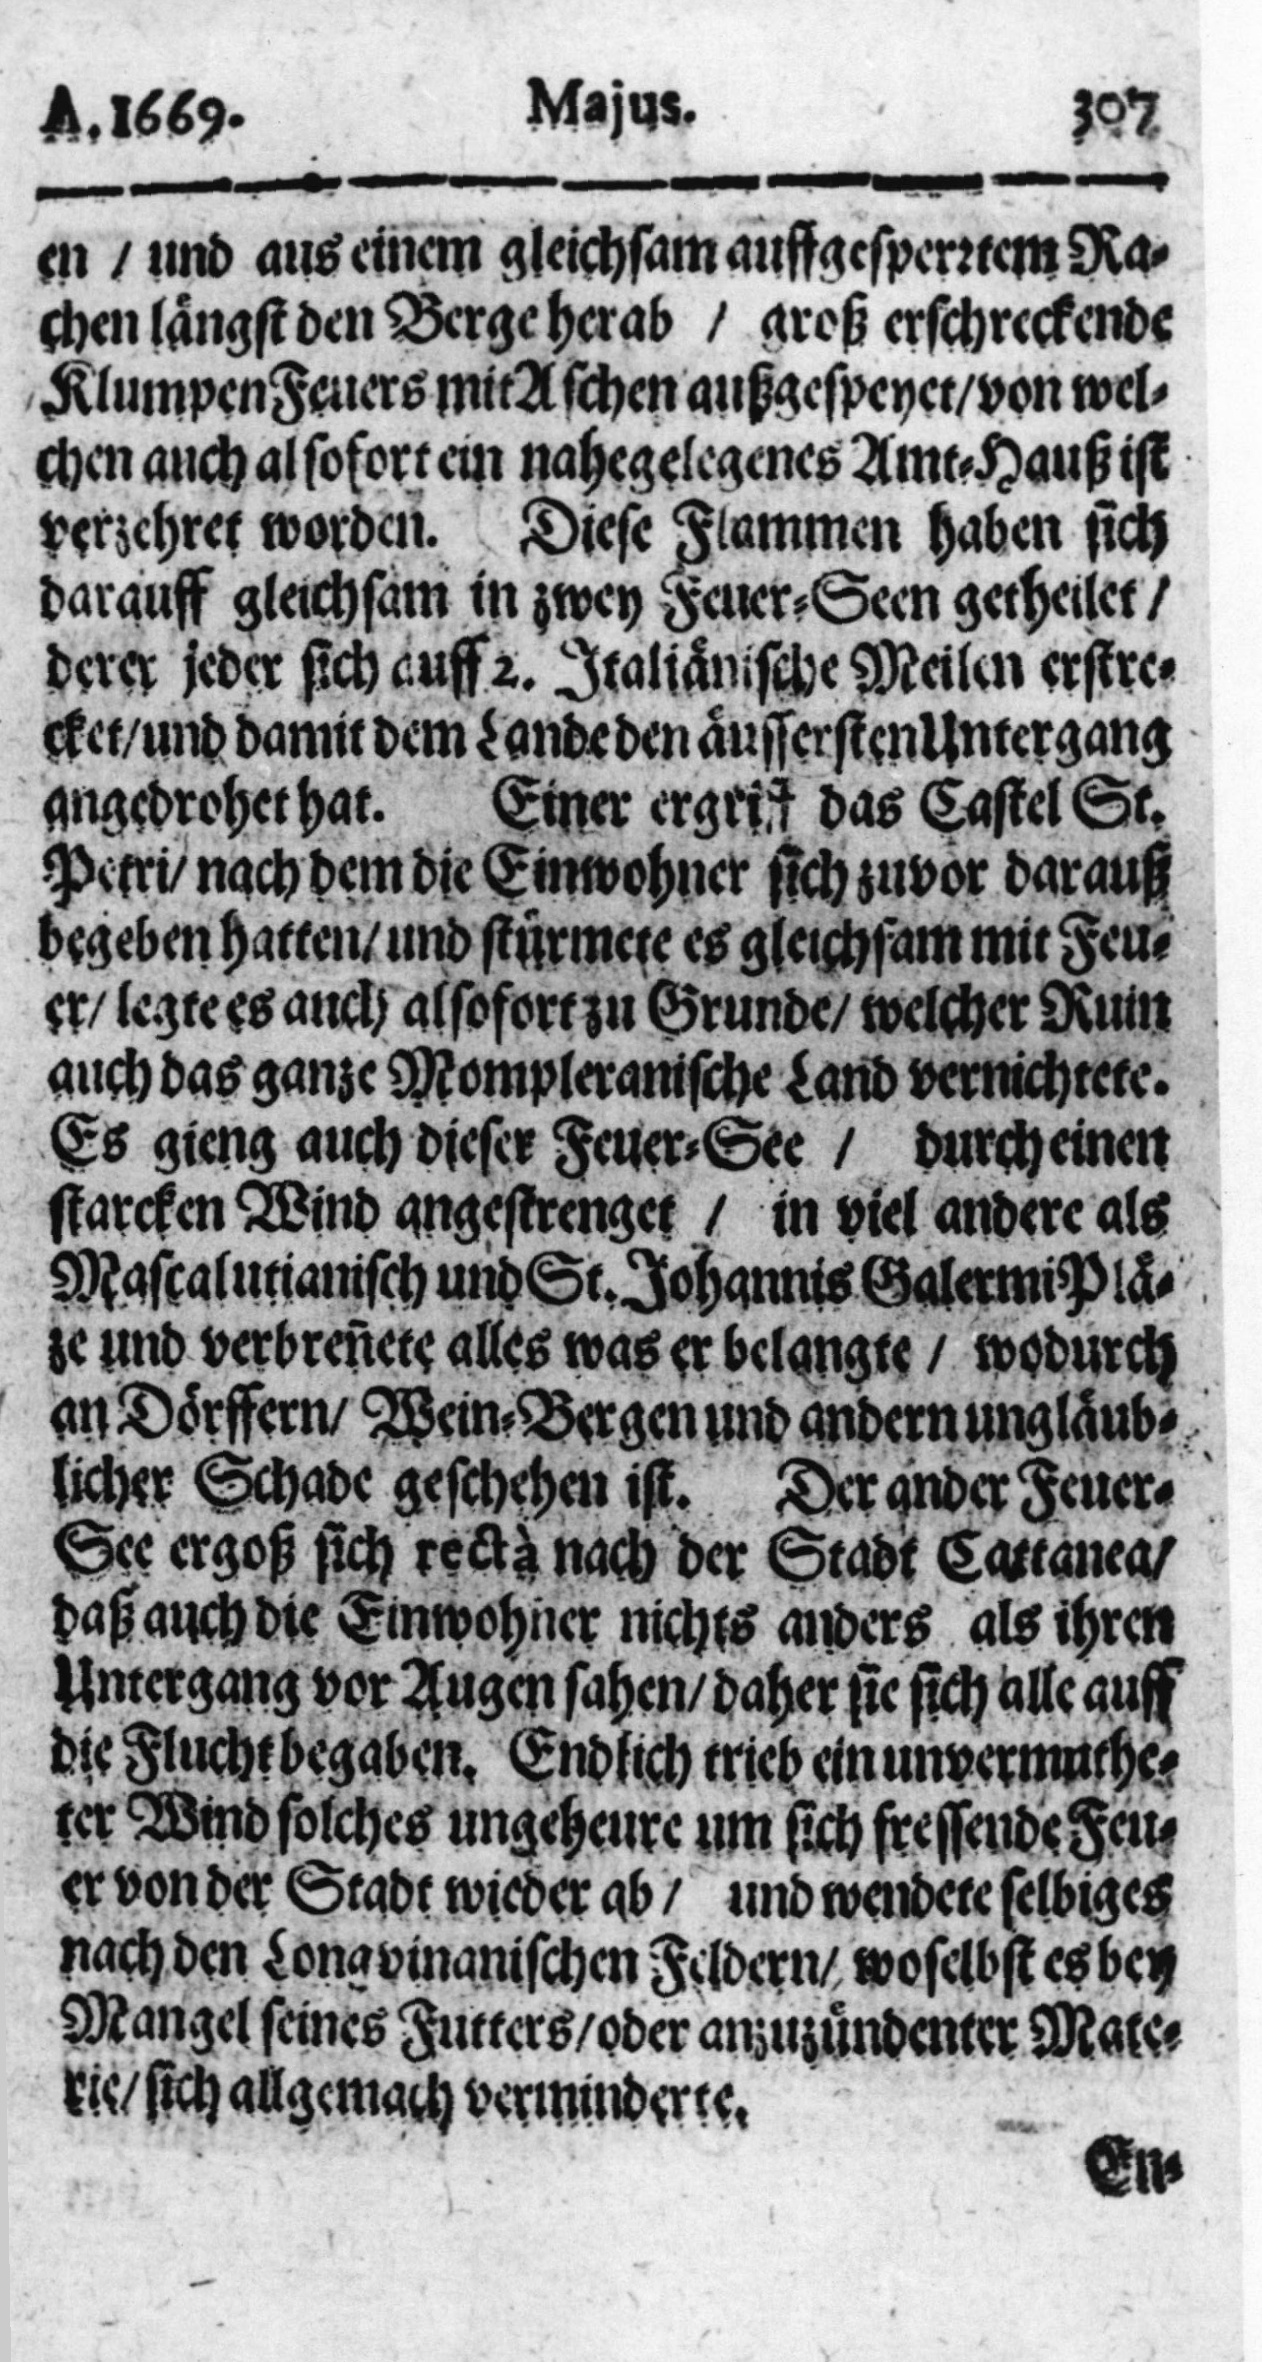 A. 1669. Majus. 307
en / und aus einem gleichsam auffgesperrtem Ra-
chen längst den Berge herab / groß erschreckende
Klumpen Feuers mit Aschen außgespeyet / von wel-
chen auch alsofort ein nahegelegenes Amt-Hauß ist
verzehret worden. Diese Flammen haben sich
darauff gleichsam in zwey Feuer-Seen getheilet /
derer jeder sich auff 2. Italiänische Meilen erstre-
cket / und damit dem Lande den äussersten Untergang
angedrohet hat. Einer ergriff das Castel St.
Petri / nach dem die Einwohner sich zuvor darauß
begeben hatten / und stürmete es gleichsam mit Feu-
er / legte es auch alsofort zu Grunde / welcher Ruin
auch das ganze Mompleranische Land vernichtete.
Es gieng auch dieser Feuer-See / durch einen
starcken Wind angestrenget / in viel andere als
Mascalutianisch und St. Johannis Galermi Plä-
ze und verbreñete alles was er belangte / wodurch
an Dörffern / Wein-Bergen und andern ungläub-
licher Schade geschehen ist. Der ander Feuer-
See ergoß sich rectà nach der Stadt Cattanea /
daß auch die Einwohner nichts anders als ihren
Untergang vor Augen sahen / daher sie sich alle auff
die Flucht begaben. Endlich trieb ein unvermuthe-
ter Wind solches ungeheure um sich fressende Feu-
er von der Stadt wieder ab / und wendete selbiges
nach den Longvinanischen Feldern / woselbst es bey
Mangel seines Futters / oder anzuzündenter Mate-
rie / sich allgemach verminderte.
En-